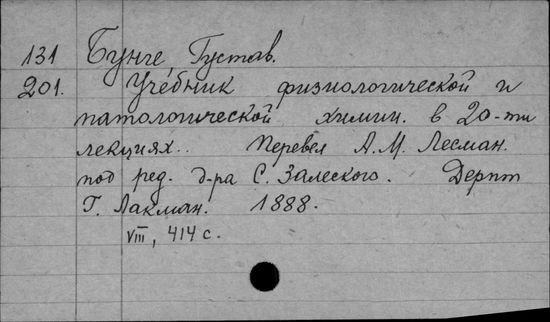 131 Бунге, Густав.
201. Учебник физиологической и
патологической химии. в 20-ти
лекциях.. Перевел А.М. Лесман.
под ред. д-ра С. Залеского. Дерпт
Г. Лакман. 1888.
VIII, 414 с.